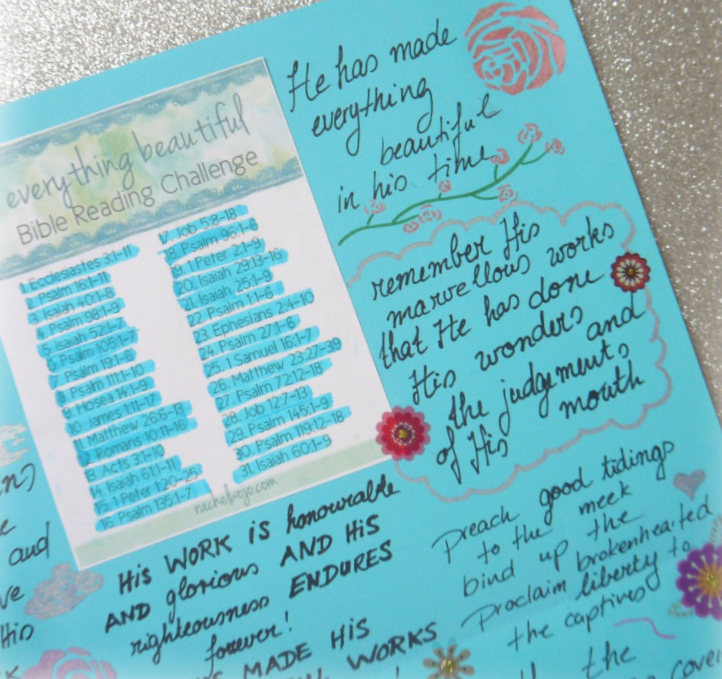 everything beautiful
Bible Reading Challenge
1. Ecclesiastes 3:1-11
2. Psalm 16:1-11
3. Isaiah 40:1-8
4. Psalm 98:1-9
5. Isaiah 52:1-7
6. Psalm 105:1-7
7. Psalm 19:1-6
8. Psalm 111:1-10
9. Hosea 14:1-9
10. James 1:11-17
11. Matthew 26:6-13
12. Romans 10:11-16
13. Acts 3:1-10
14. Isaiah 61:1-11
15. 1 Peter 1:20-25
16. Psalm 135:1-7
17. Job 5:8-18
18. Psalm 96:1-6
19. 1 Peter 2:1-9
20. Isaiah 29:13-16
21. Isaiah 25:1-9
22. Psalm 1:1-6
23. Ephesians 2:4-10
24. Psalm 27:1-6
25. 1 Samuel 16:1-7
26. Matthew 23:27-39
27. Psalm 72:12-18
28. Job 12:7-13
29. Psalm 145:1-9
30. Psalm 119:12-18
31. Isaiah 60:1-9
rachelwojo.com
He has made
everything
beautiful
in his time
remember His
marvellous works
that He has done
His wonders and
the judgements
of His mouth
Preach good tidings
to the meek
bind up the
brokenhearted
Proclaim liberty to
the captives
the
His WORK is honourable
AND glorious AND His
righteousness ENDURES
forever!
MADE His
WORKS
and
His